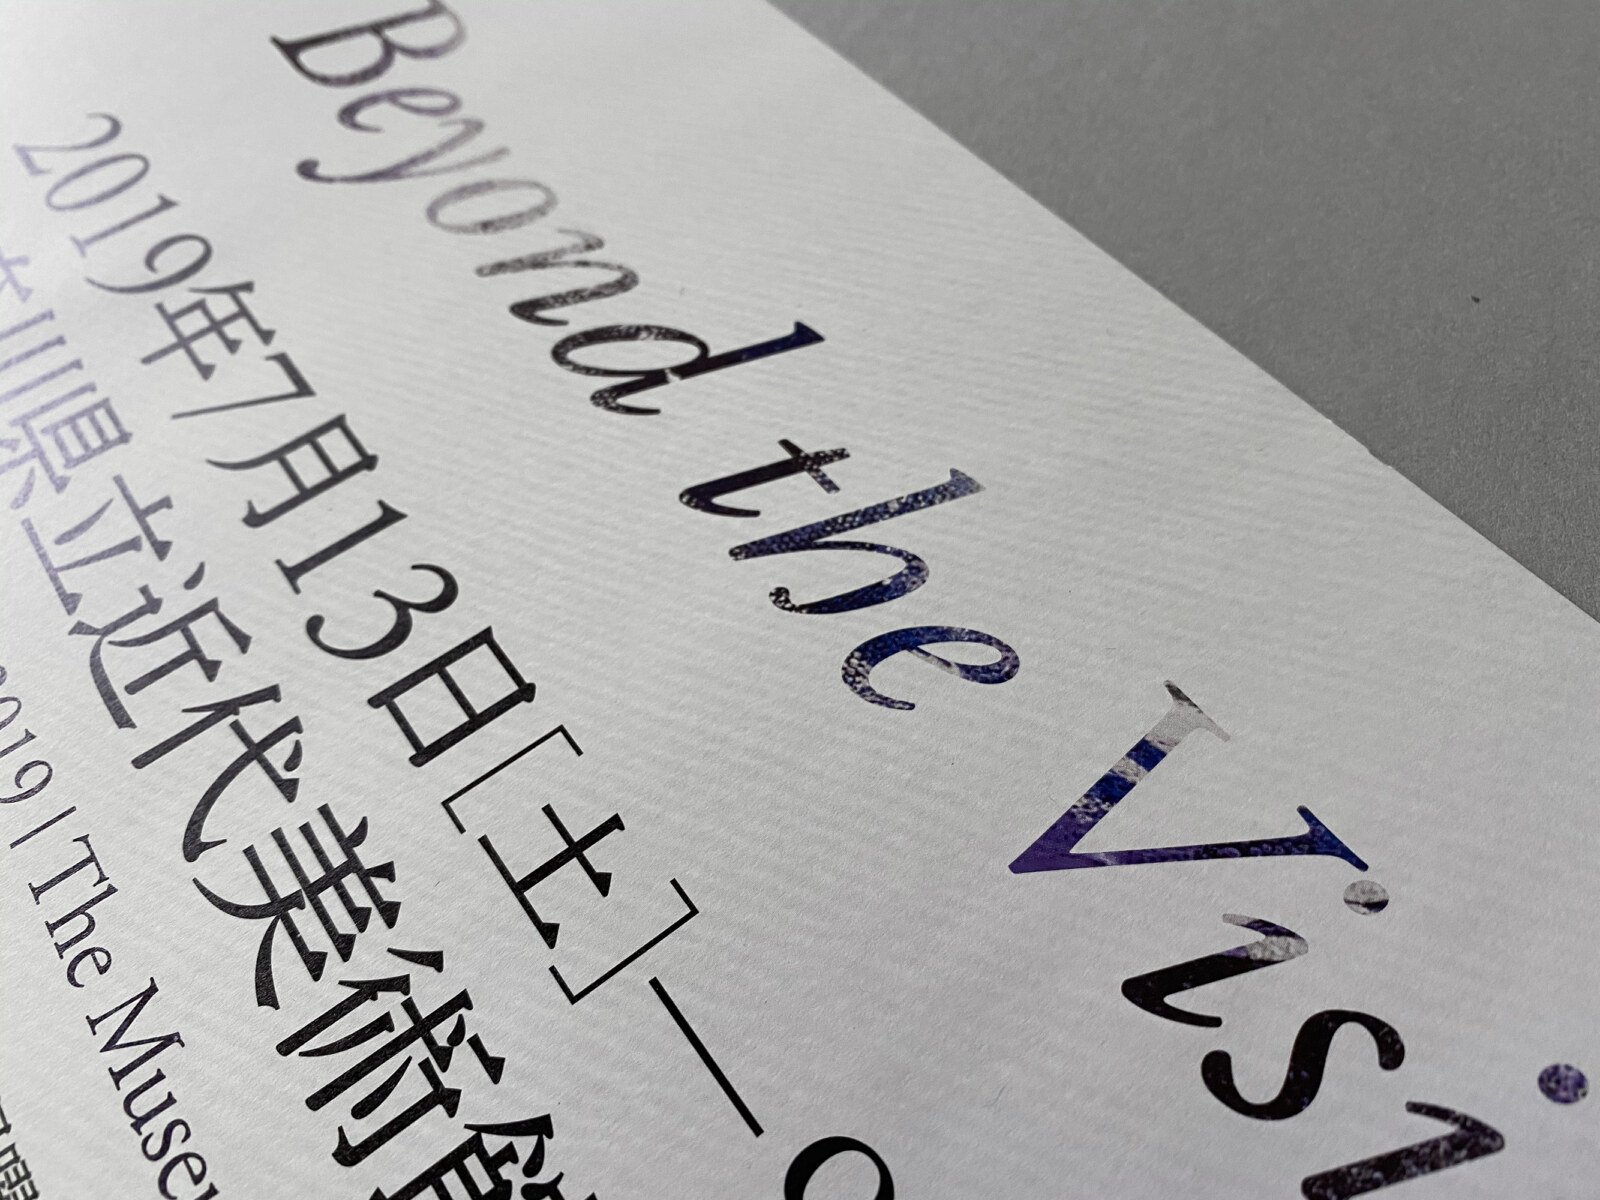 Beyond the Visi
2019年7月13日[土]—
川県立近代美術館
2019 | The Museu